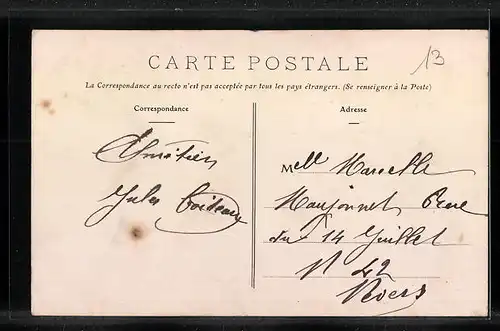 13
CARTE POSTALE
La Correspondance au recto n'est pas acceptée par tous les pays étrangers. (Se renseigner à la Poste)
Correspondance
Adresse
Jules
Mell Marcelle
Rue
du 14 Juillet
N 42